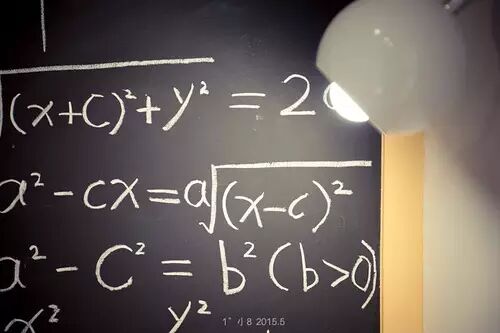 √(x+C)²+y² = 2
a² - cx = a√(x-c)²
a² - C² = b² (b>0)
x² y²
8 2015.5